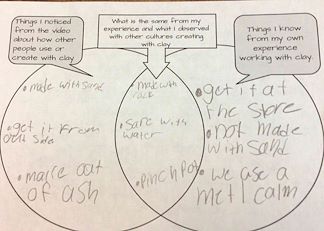 Things I noticed
from the video
about how other
people use or
create with clay
What is the same from my
experience and what I observed
with other cultures creating
with clay
Things I know
from my own
experience
working with clay.
• made with Sand
• get it from
side
• made out
of ash
made with
rock
• Safe with
water
• Pinch Pot
• get it at
the Store
• not made
with Sand
• we use a